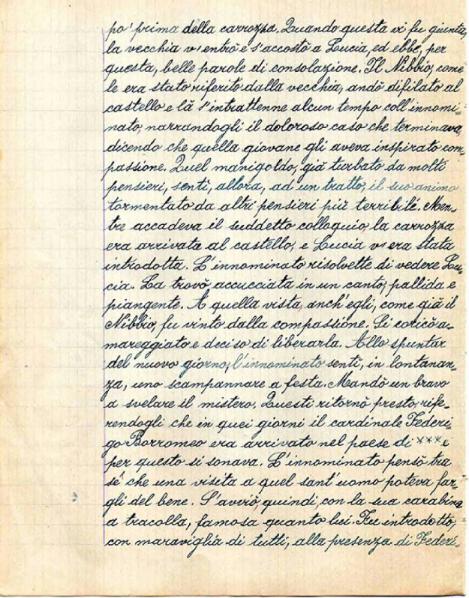 po' prima della carrozza. Quando questa vi fu giunta,
la vecchia v'entrò e s'accostò a Lucia, ed ebbe, per
questa, belle parole di consolazione. Il Nibbio, come
le era stato riferito dalla vecchia, andò difilato al
castello e là s'intrattenne alcun tempo coll'innomi-
nato, narrandogli il doloroso caso che terminava,
dicendo che quella giovane gli aveva inspirato com-
passione. Quel manigoldo, già turbato da molti
pensieri, sentì, allora, ad un tratto, il suo animo
tormentato da altri pensieri più terribili. Men-
tre accadeva il suddetto colloquio, la carrozza
era arrivata al castello, e Lucia vi era stata
introdotta. L'innominato risolvette di vedere Lu-
cia. La trovò accucciata in un canto, pallida e
piangente. A quella vista, anch'egli, come già il
Nibbio, fu vinto dalla compassione. Si coricò a-
mareggiato e deciso di liberarla. Allo spuntar
del nuovo giorno, l'innominato sentì, in lontanan-
za, uno scampannare a festa. Mandò un bravo
a svelare il mistero. Questi ritornò presto, rife-
rendogli che in quei giorni il cardinale Federi-
go Borromeo era arrivato nel paese di *** e
per questo si sonava. L'innominato pensò tra
sé che una visita a quel sant'uomo poteva far
gli del bene. S'avviò, quindi, con la sua carabina
a tracolla, famosa quanto lui. Fu introdotto,
con maraviglia di tutti, alla presenza di Federi-